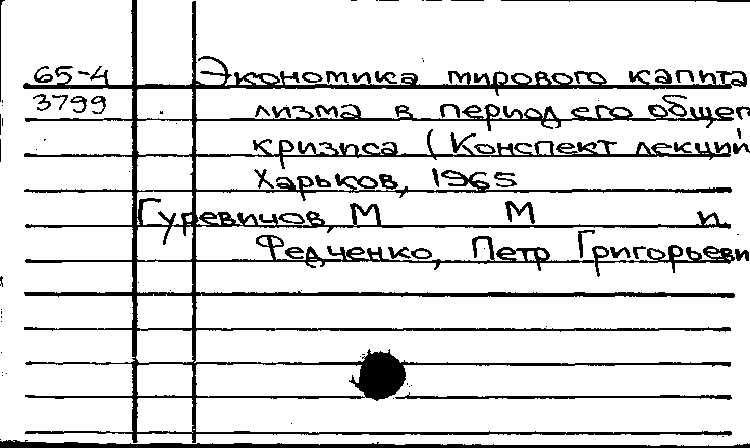 65-4 Экономика мирового капита
3799 лизма в период его общег
кризиса (Конспект лекций
Харьков, 1965
Гуревичов, М М и
Федченко, Петр Григорьеви